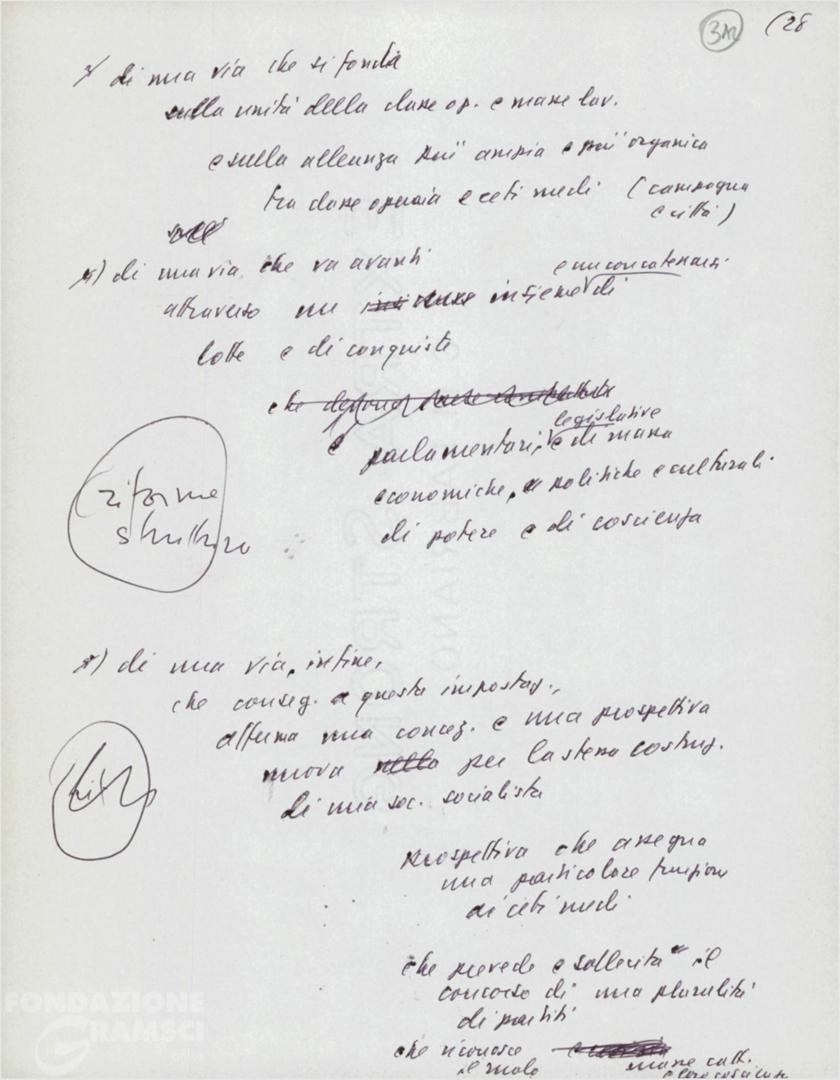 3A2 (28
*) di una via che si fonda
sulla unità della classe op. e masse lav.
e sulla alleanza più ampia e più organica
tra classe operaia e ceti medi (campagna
e città)
*) di una via che va avanti
e un concatenarsi
attraverso un insieme di
lotte e di conquiste
che
legislative
parlamentari, e di massa
economiche, politiche e culturali
di potere e di coscienza
riforme
struttura
*) di una via, infine,
che conseg. a questa impostaz.,
afferma una concez. e una prospettiva
nuova nella per la stessa costruz.
di una soc. socialista
prospettiva che assegna
una particolare funzione
ai ceti medi
che prevede e sollecita il
concorso di una pluralità
di partiti
che riconosce
il ruolo masse catt.
e loro coscienza
FONDAZIONE
GRAMSCI